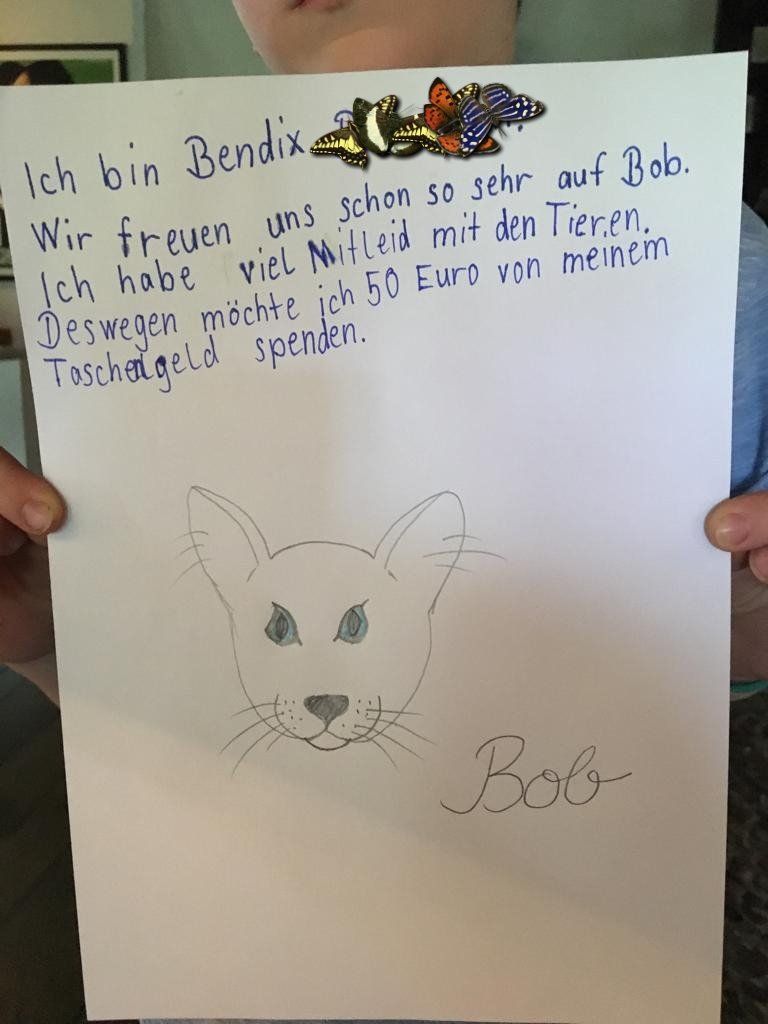 Ich bin Bendix
Wir freuen uns schon so sehr auf Bob.
Ich habe viel Mitleid mit den Tieren.
Deswegen möchte ich 50 Euro von meinem
Taschengeld spenden.
Bob